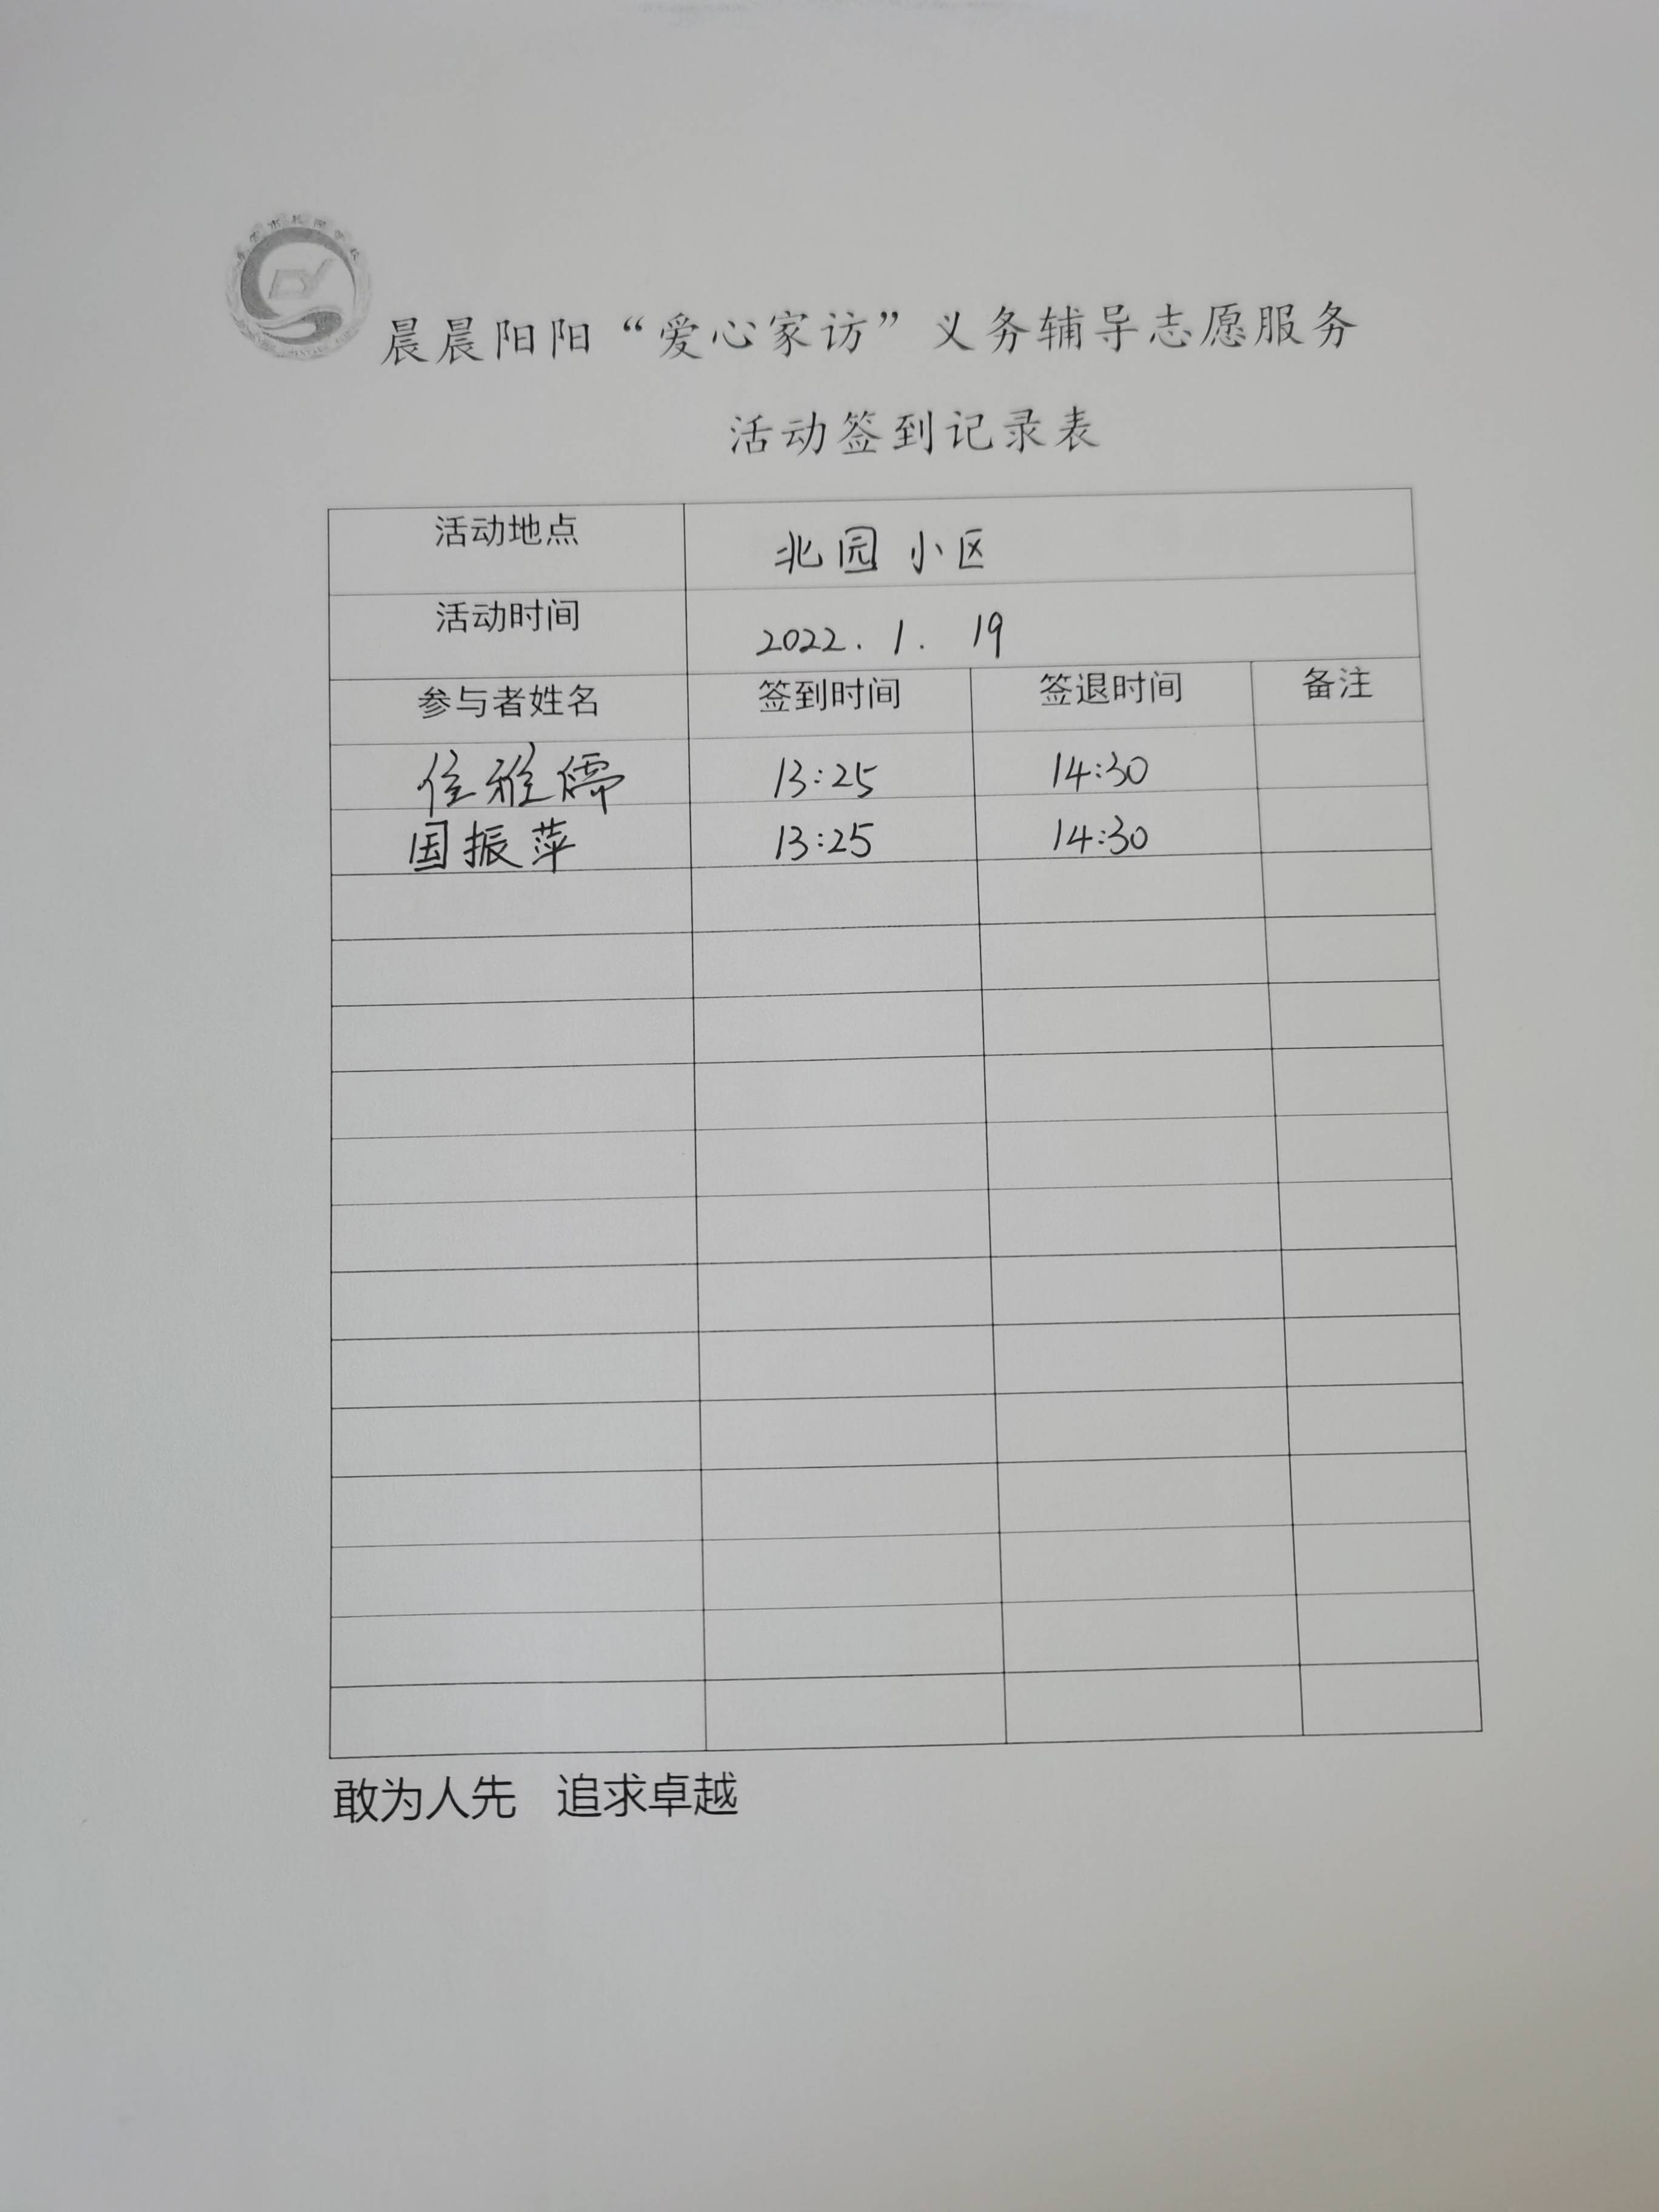 晨晨阳阳“爱心家访”义务辅导志愿服务
活动签到记录表
活动地点 北园小区
活动时间 2022.1.19
参与者姓名 签到时间 签退时间 备注
雅儒 13:25 14:30
国振萍 13:25 14:30
敢为人先 追求卓越